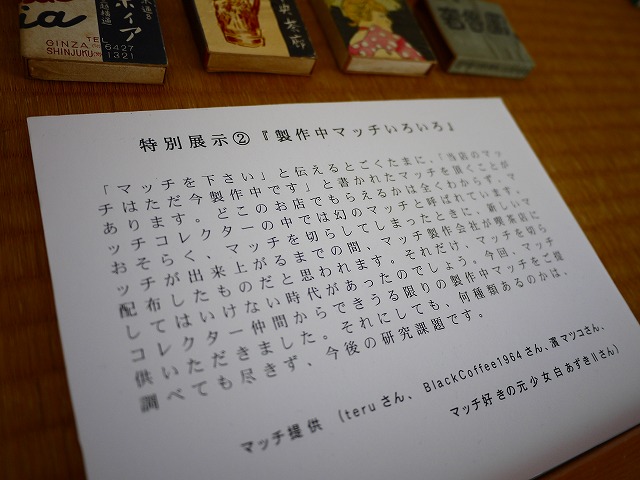 ia
GINZA
TEL
6427
SHINJUKU
1321
特別展示② 『製作中マッチいろいろ』
「マッチを下さい」と伝えるとごくたまに、「当店のマッ
チはただ今製作中です」と書かれたマッチを頂くことが
あります。どこのお店でもらえるかは全くわからず、マ
ッチコレクターの中では幻のマッチと呼ばれています。
おそらく、マッチを切らしてしまったときに、新しいマ
ッチが出来上がるまでの間、マッチ製作会社が喫茶店に
配布したものだと思われます。それだけ、マッチを切ら
してはいけない時代があったのでしょう。今回、マッチ
コレクター仲間からできうる限りの製作中マッチをご提
供いただきました。それにしても、何種類あるのかは、
調べても尽きず、今後の研究課題です。
マッチ提供 (teruさん、BlackCoffee1964さん、濱マツコさん、
マッチ好きの元少女白あずきⅡさん)